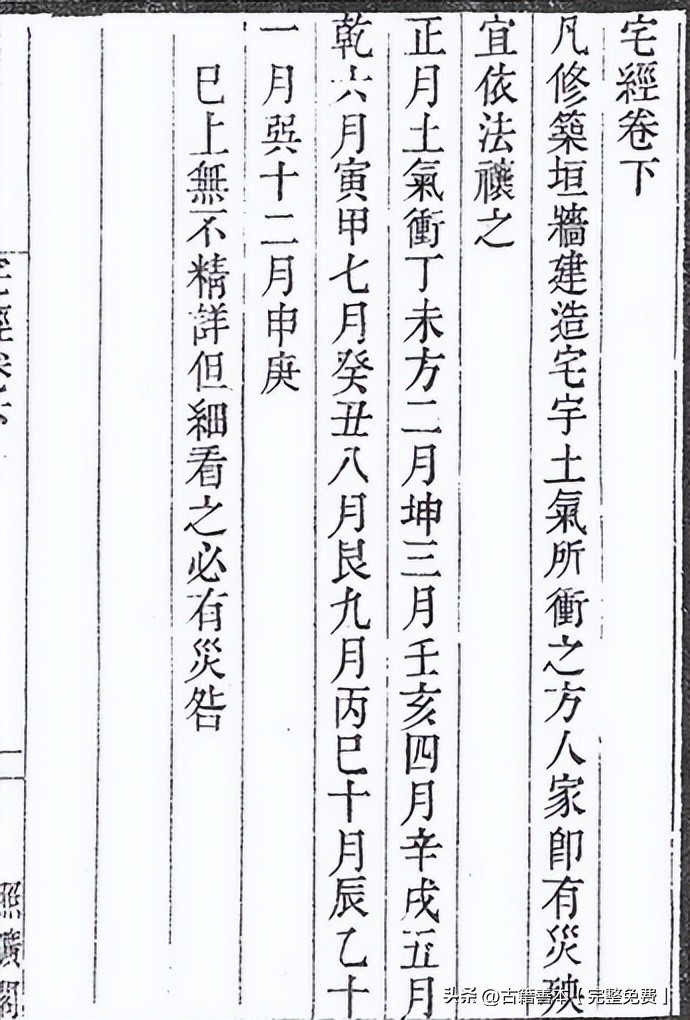 宅經卷下
凡修築垣牆建造宅宇土氣所衝之方人家卽有災殃
宜依法禳之
正月土氣衝丁未方二月坤三月壬亥四月辛戌五月
乾六月寅甲七月癸丑八月艮九月丙巳十月辰乙十
一月巽十二月申庚
巳上無不精詳但細看之必有災咎
宅經卷下
照曠閣
头条 @古籍善本【完整免费】